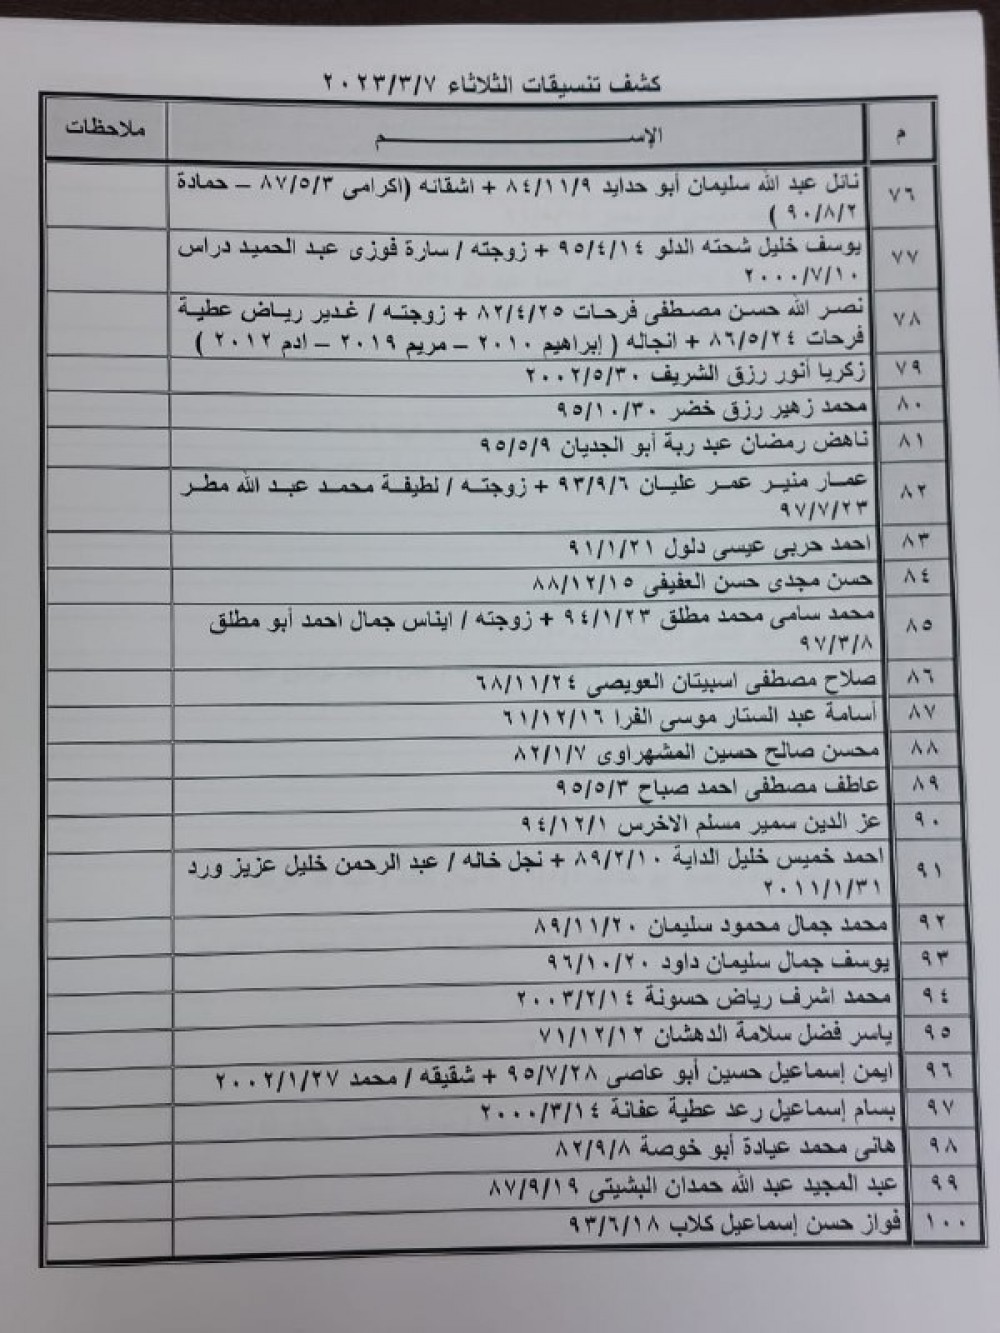 كشف تنسيقات الثلاثاء ٢٠٢٣/٣/٧
م الإســــــم ملاحظات
٧٦ نائل عبد الله سليمان أبو حدايد ٨٤/١١/٩ + اشقائه (اكرامى ٨٧/٥/٣ – حمادة
٩٠/٨/٢ )
٧٧ يوسف خليل شحته الدلو ٩٥/٤/١٤ + زوجته / سارة فوزى عبد الحميد دراس
٢٠٠٠/٧/١٠
٧٨ نصر الله حسن مصطفى فرحات ٨٢/٤/٢٥ + زوجته / غدير رياض عطية
فرحات ٨٦/٥/٢٤ + انجاله ( إبراهيم ٢٠١٠ – مريم ٢٠١٩ – ادم ٢٠١٢ )
٧٩ زكريا أنور رزق الشريف ٢٠٠٢/٥/٣٠
٨٠ محمد زهير رزق خضر ٩٥/١٠/٣٠
٨١ ناهض رمضان عبد ربة أبو الجديان ٩٥/٥/٩
٨٢ عمار منير عمر عليان ٩٣/٩/٦ + زوجته / لطيفة محمد عبد الله مطر
٩٧/٧/٢٣
٨٣ احمد حربى عيسى دلول ٩١/١/٢١
٨٤ حسن مجدى حسن العفيفى ٨٨/١٢/١٥
٨٥ محمد سامى محمد مطلق ٩٤/١/٢٣ + زوجته / ايناس جمال احمد أبو مطلق
٩٧/٣/٨
٨٦ صلاح مصطفى اسبيتان العويصى ٦٨/١١/٢٤
٨٧ أسامة عبد الستار موسى الفرا ٦١/١٢/١٦
٨٨ محسن صالح حسين المشهراوى ٨٢/١/٧
٨٩ عاطف مصطفى احمد صباح ٩٥/٥/٣
٩٠ عز الدين سمير مسلم الاخرس ٩٤/١٢/١
٩١ احمد خميس خليل الداية ٨٩/٢/١٠ + نجل خاله / عبد الرحمن خليل عزيز ورد
٢٠١١/١/٣١
٩٢ محمد جمال محمود سليمان ٨٩/١١/٢٠
٩٣ يوسف جمال سليمان داود ٩٦/١٠/٢٠
٩٤ محمد اشرف رياض حسونة ٢٠٠٣/٢/١٤
٩٥ ياسر فضل سلامة الدهشان ٧١/١٢/١٢
٩٦ ايمن إسماعيل حسين أبو عاصى ٩٥/٧/٢٨ + شقيقه / محمد ٢٠٠٢/١/٢٧
٩٧ بسام إسماعيل رعد عطية عفانة ٢٠٠٠/٣/١٤
٩٨ هانى محمد عيادة أبو خوصة ٨٢/٩/٨
٩٩ عبد المجيد عبد الله حمدان البشيتى ٨٧/٩/١٩
١٠٠ فواز حسن إسماعيل كلاب ٩٣/٦/١٨